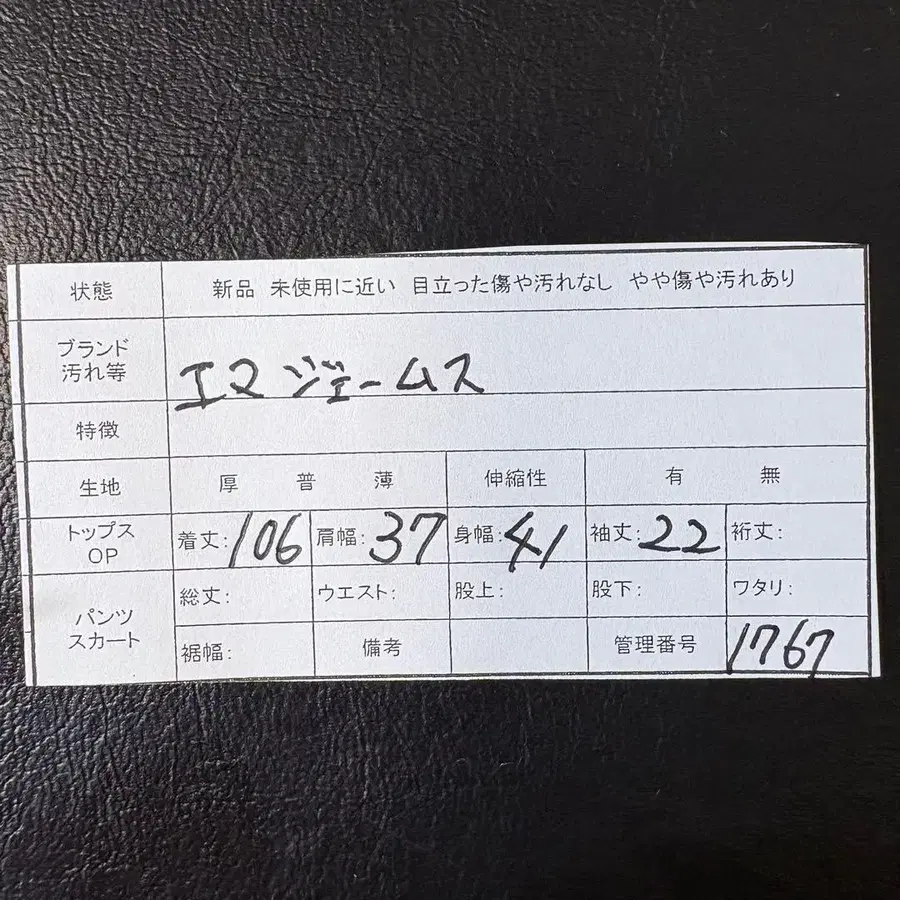 状態 新品 未使用に近い 目立った傷や汚れなし やや傷や汚れあり
ブランド
汚れ等 エマ ジェームス
特徴
生地 厚 普 薄 伸縮性 有 無
トップス
OP 着丈:106 肩幅:37 身幅:41 袖丈:22 裄丈:
パンツ
スカート 総丈: ウエスト: 股上: 股下: ワタリ:
裾幅: 備考 管理番号 1767